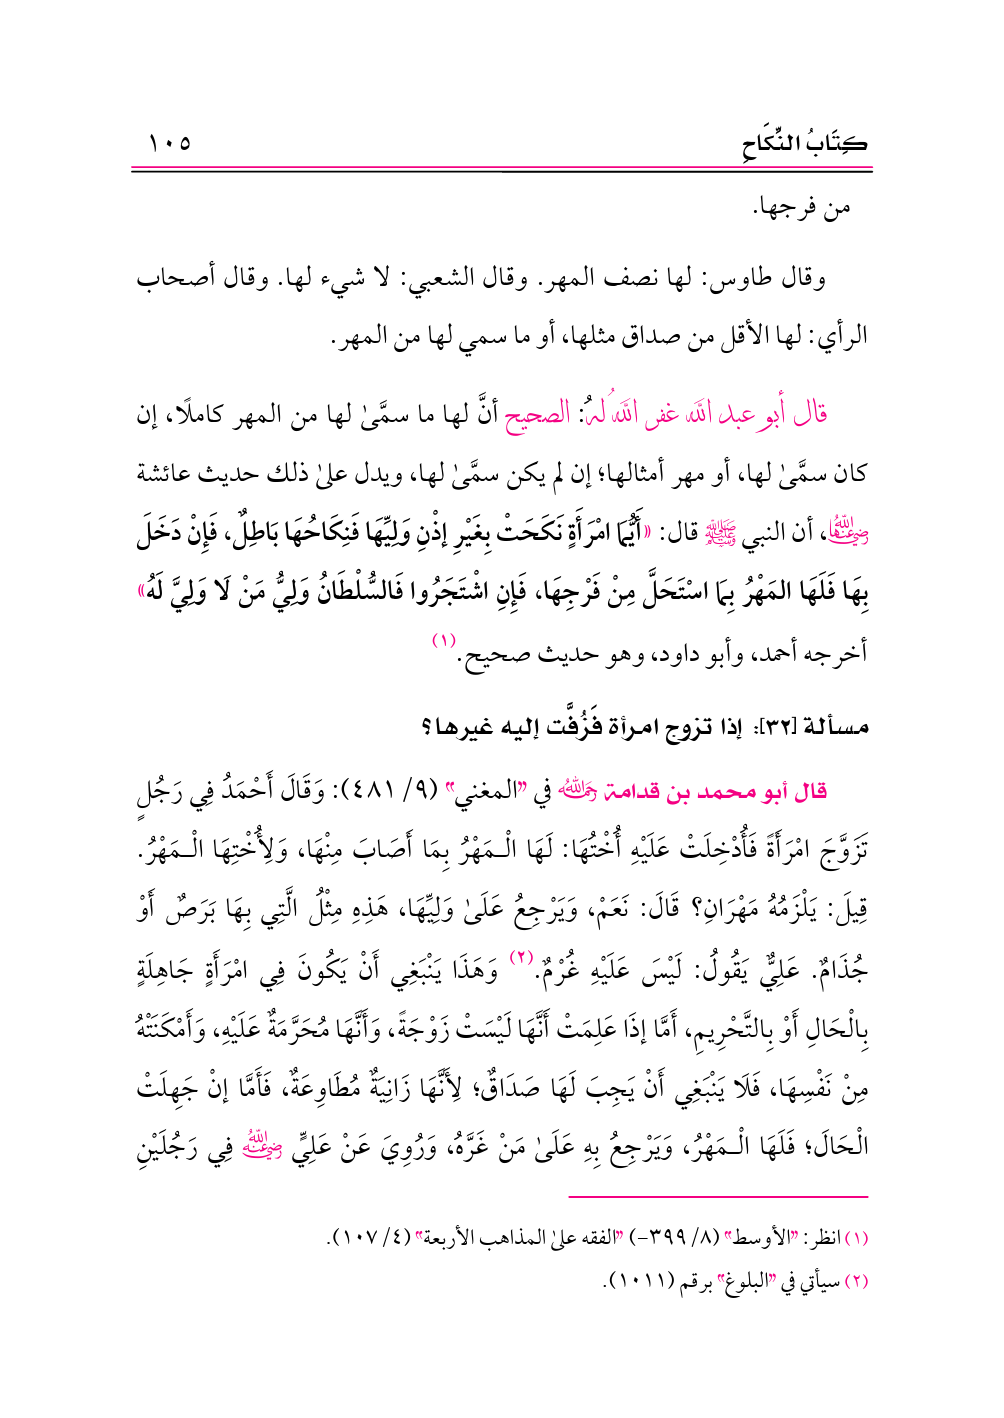 كِتَابُ النِّكَاحِ ١٠٥
من فرجها.
وقال طاوس: لها نصف المهر. وقال الشعبي: لا شيء لها. وقال أصحاب
الرأي: لها الأقل من صداق مثلها، أو ما سمي لها من المهر.
قال أبو عبد الله غفر اللهُ لهُ: الصحيح أنَّ لها ما سمَّىٰ لها من المهر كاملًا، إن
كان سمَّىٰ لها، أو مهر أمثالها؛ إن لم يكن سمَّىٰ لها، ويدل علىٰ ذلك حديث عائشة
رضي الله عنها، أن النبي ﷺ قال: «أَيُّمَا امْرَأَةٍ نَكَحَتْ بِغَيْرِ إذْنِ وَلِيِّهَا فَنِكَاحُهَا بَاطِلٌ، فَإِنْ دَخَلَ
بِهَا فَلَهَا المَهْرُ بِمَا اسْتَحَلَّ مِنْ فَرْجِهَا، فَإِنِ اشْتَجَرُوا فَالسُّلْطَانُ وَلِيُّ مَنْ لَا وَلِيَّ لَهُ»
أخرجه أحمد، وأبو داود، وهو حديث صحيح.(١)
مسألة [٣٢]: إذا تزوج امرأة فَزُفَّت إليه غيرها؟
قال أبو محمد بن قدامة رحمه الله في "المغني" (٩/ ٤٨١): وَقَالَ أَحْمَدُ فِي رَجُلٍ
تَزَوَّجَ امْرَأَةً فَأُدْخِلَتْ عَلَيْهِ أُخْتُهَا: لَهَا الْـمَهْرُ بِمَا أَصَابَ مِنْهَا، وَلِأُخْتِهَا الْـمَهْرُ.
قِيلَ: يَلْزَمُهُ مَهْرَانِ؟ قَالَ: نَعَمْ، وَيَرْجِعُ عَلَىٰ وَلِيِّهَا، هَذِهِ مِثْلُ الَّتِي بِهَا بَرَصٌ أَوْ
جُذَامٌ. عَلِيٌّ يَقُولُ: لَيْسَ عَلَيْهِ غُرْمٌ.(٢) وَهَذَا يَنْبَغِي أَنْ يَكُونَ فِي امْرَأَةٍ جَاهِلَةٍ
بِالْحَالِ أَوْ بِالتَّحْرِيمِ، أَمَّا إذَا عَلِمَتْ أَنَّهَا لَيْسَتْ زَوْجَةً، وَأَنَّهَا مُحَرَّمَةٌ عَلَيْهِ، وَأَمْكَنَتْهُ
مِنْ نَفْسِهَا، فَلَا يَنْبَغِي أَنْ يَجِبَ لَهَا صَدَاقٌ؛ لِأَنَّهَا زَانِيَةٌ مُطَاوِعَةٌ، فَأَمَّا إنْ جَهِلَتْ
الْحَالَ؛ فَلَهَا الْـمَهْرُ، وَيَرْجِعُ بِهِ عَلَىٰ مَنْ غَرَّهُ، وَرُوِيَ عَنْ عَلِيٍّ رضي الله عنه فِي رَجُلَيْنِ
(١) انظر: "الأوسط" (٨/ ٣٩٩-) "الفقه علىٰ المذاهب الأربعة" (٤/ ١٠٧).
(٢) سيأتي في "البلوغ" برقم (١٠١١).